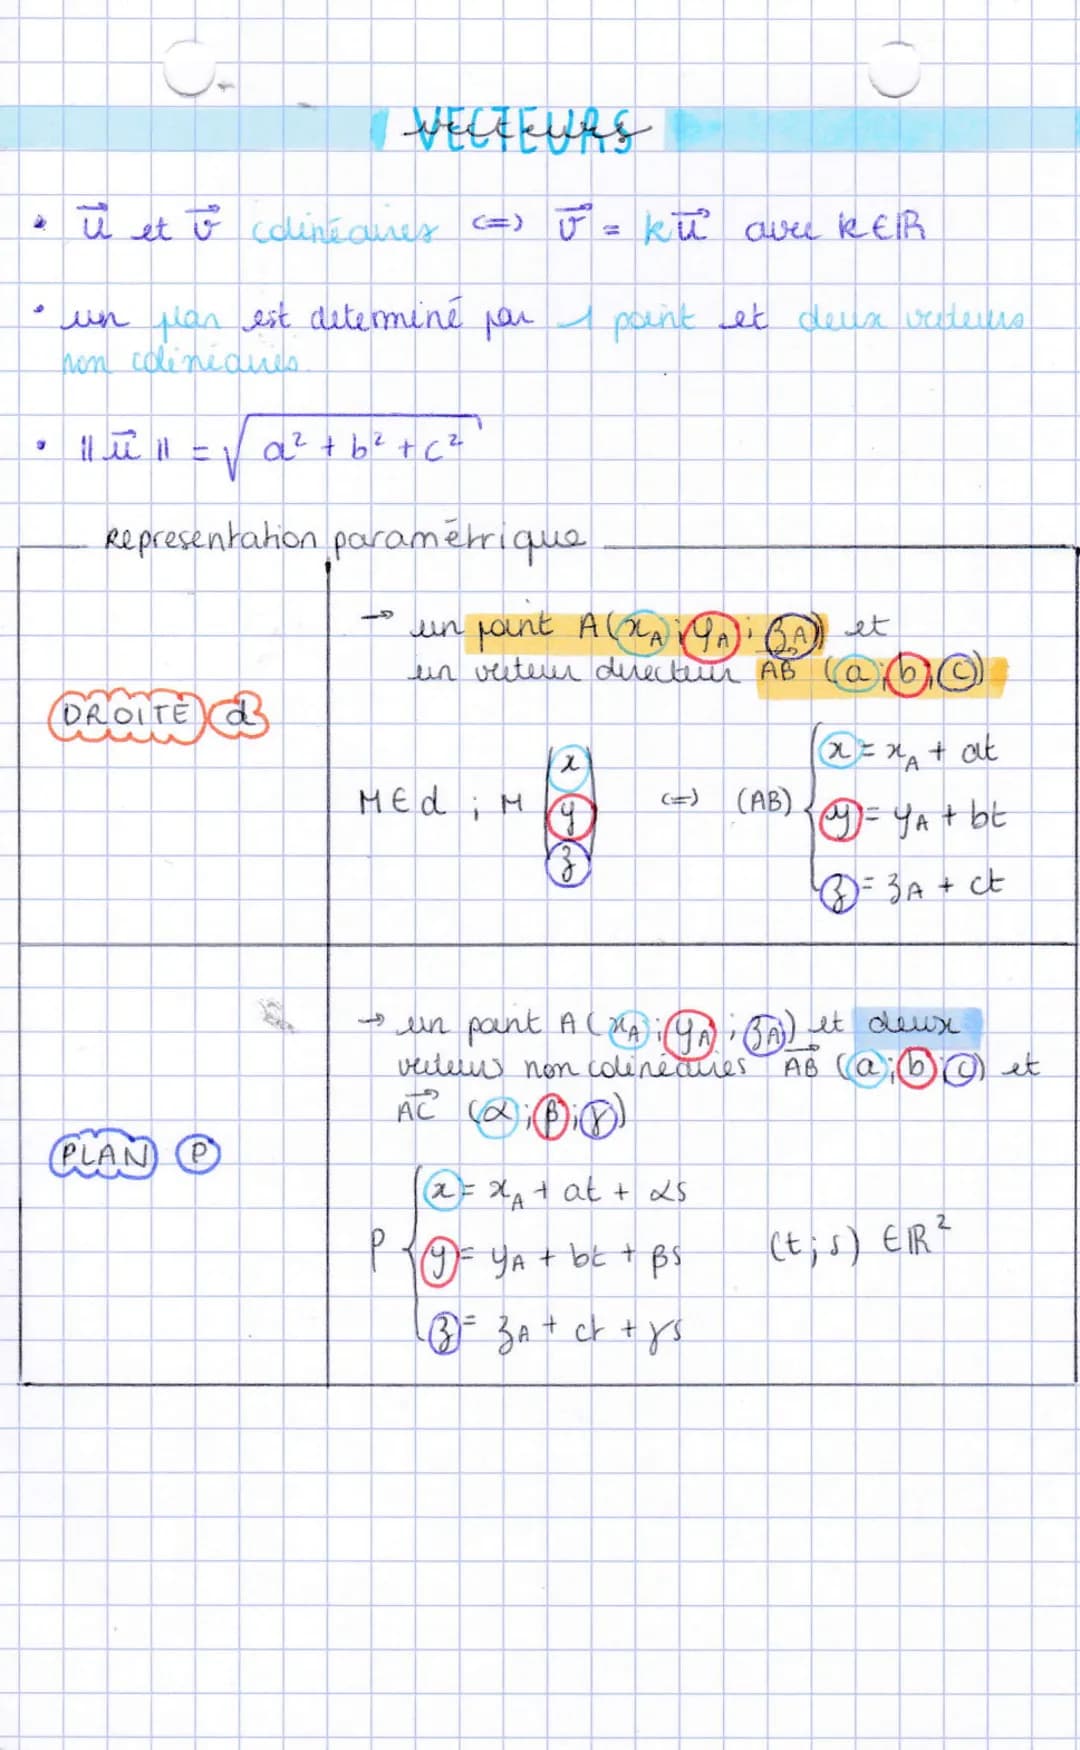 VECTEURS
vecteurs
• u⃗ et v⃗ colinéaires <=> v⃗ = ku⃗ avec k∈ℝ
• un plan est determiné par 1 point et deux vecteurs
non colinéaires.
• ||u⃗|| = √(a² + b² + c²)
Representation paramétrique
→ un point A(xA ; yA ; zA) et
un vecteur directeur AB⃗ (a ; b ; c)
DROITE d
M∈d ; M (x y z) <=> (AB) { x = xA + at
y = yA + bt
z = zA + ct
→ un point A(xA ; yA ; zA) et deux
vecteurs non colinéaires AB⃗ (a ; b ; c) et
AC⃗ (α ; β ; γ)
PLAN P
P { x = xA + at + αs
y = yA + bt + βs (t ; s) ∈ℝ²
z = zA + ct + γs